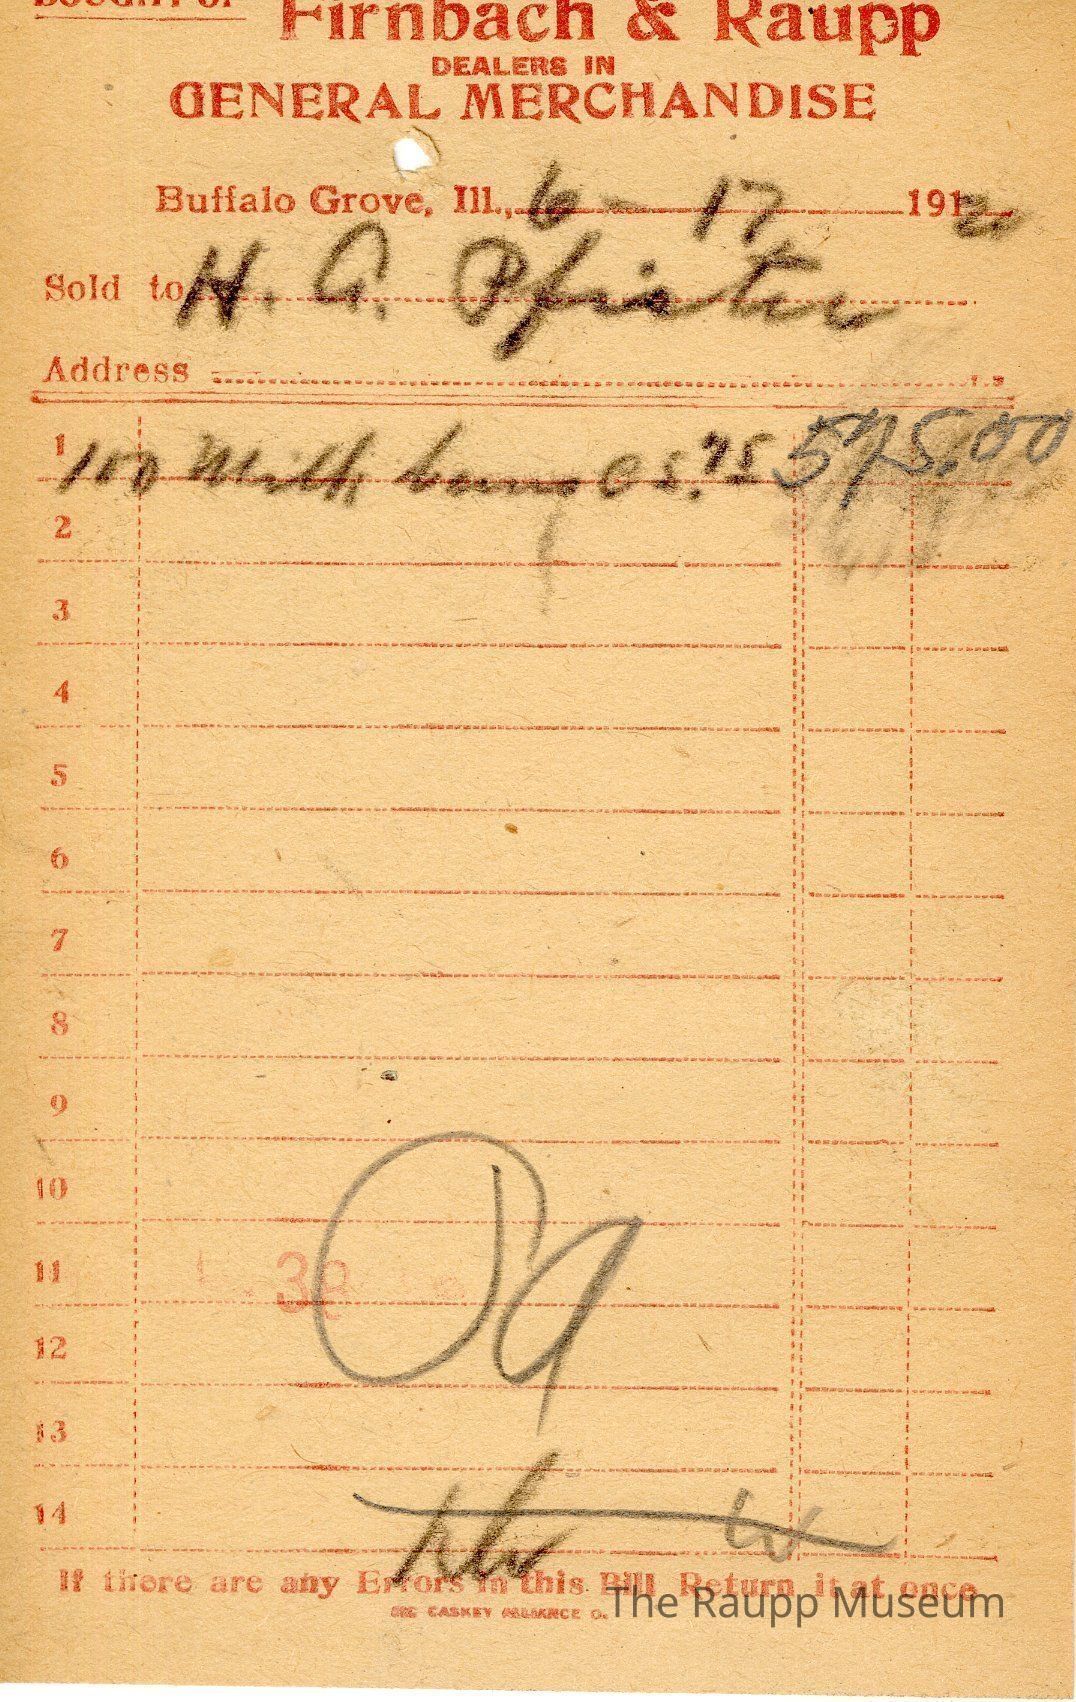 BOUGHT OF
Firnbach & Raupp
DEALERS IN
GENERAL MERCHANDISE
Buffalo Grove, Ill., 6 - 17 1912
Sold to H. G. Pfister
Address
1 100 Milk @ 5.75 575.00
2
3
4
5
6
7
8
9
10
11 38
12
13
14
If there are any Errors in this Bill Return it at once
CASKEY ALLIANCE O.
The Raupp Museum